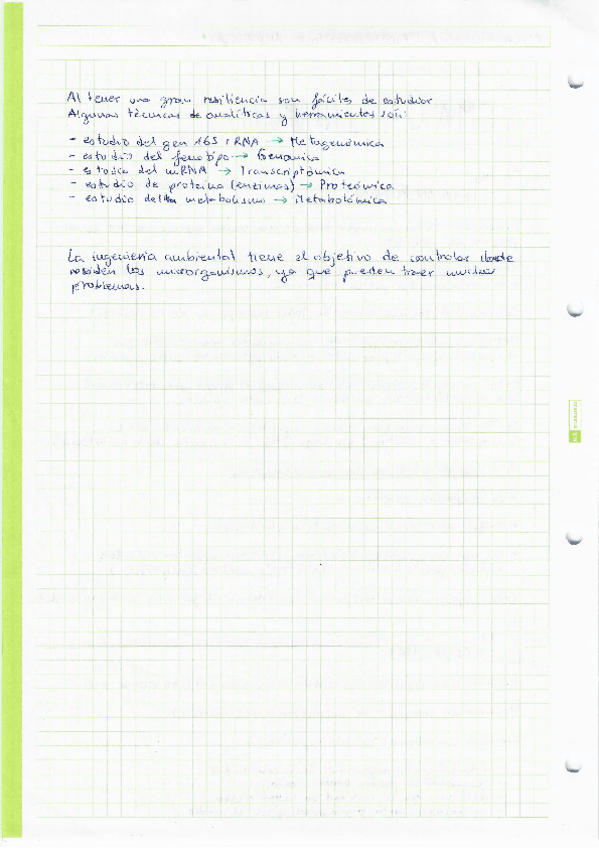 Al tener una gran resiliencia son fáciles de estudiar
Algunas técnicas de analíticas y herramientas son:
- estudio del gen 16S rRNA → Metagenómica
- estudio del fenotipo → Genomica
- estudio del mRNA → Transcriptómica
- estudio de proteína (enzimas) → Proteómica
- estudio del metabolismo → Metabolómica
La ingeniería ambiental tiene el objetivo de controlar donde
residen los microorganismos, ya que pueden traer muchos
problemas.